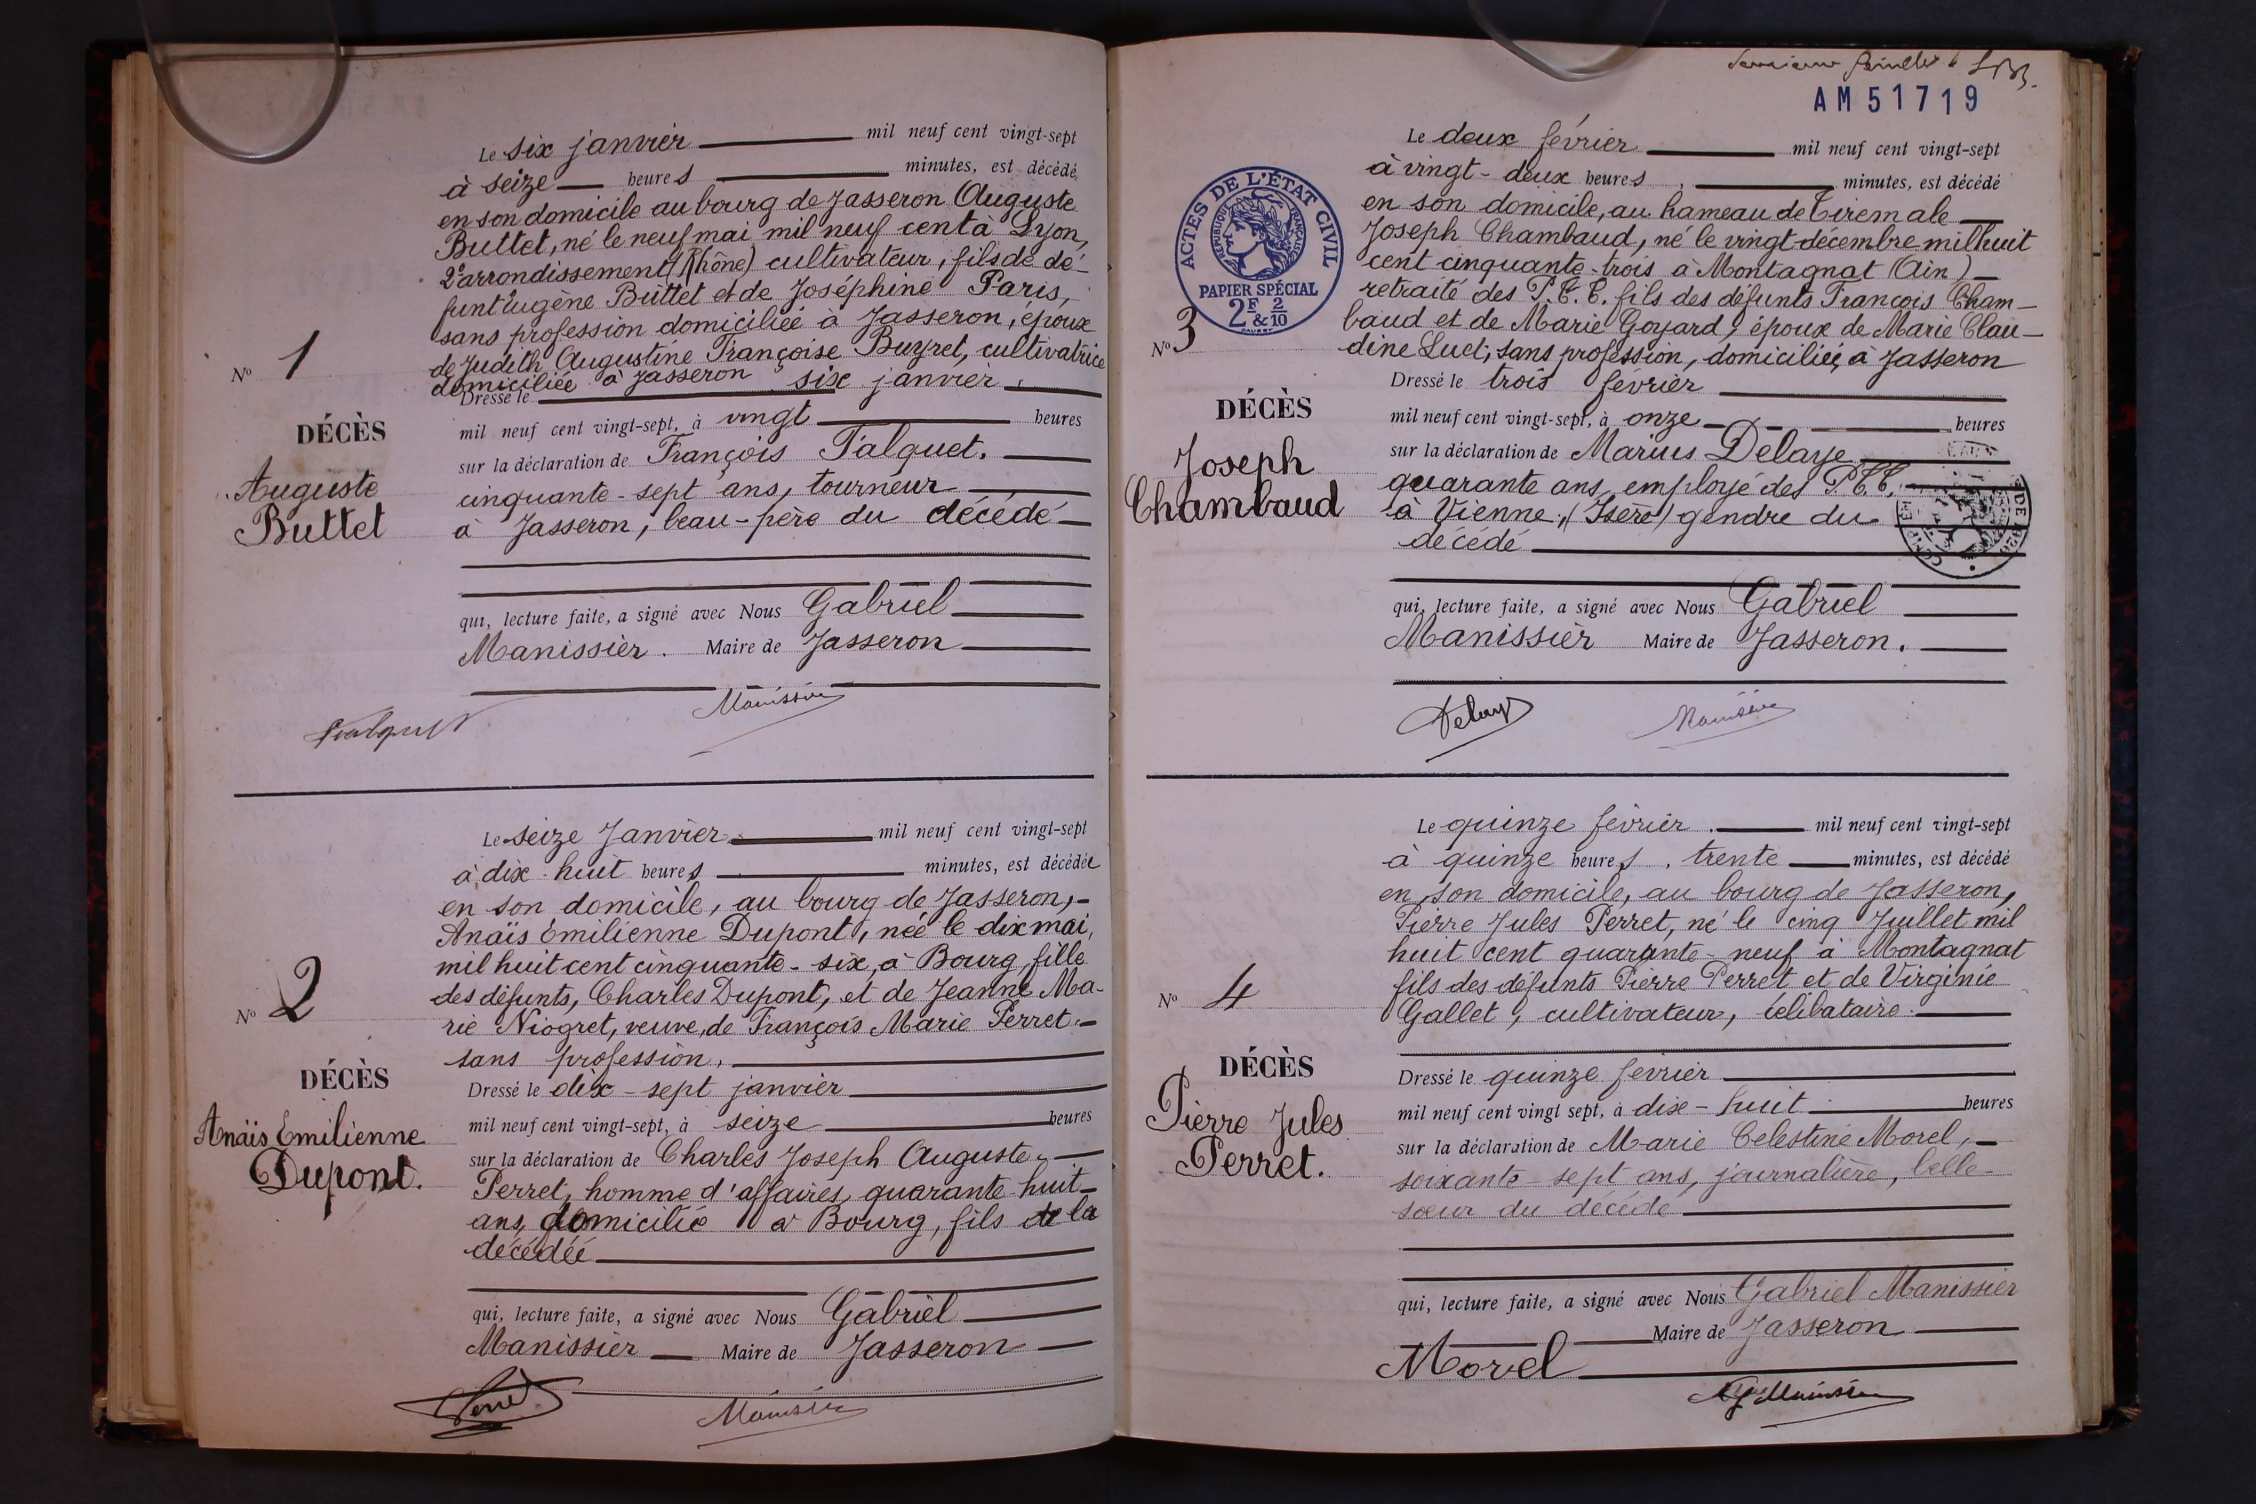 Le six janvier mil neuf cent vingt-sept
à seize heures minutes, est décédé
en son domicile au bourg de Jasseron Auguste
Buttet, né le neuf mai mil neuf cent à Lyon,
2e arrondissement (Rhône) cultivateur, fils de dé-
funt Eugène Buttet et de Joséphine Paris,
sans profession domiciliée à Jasseron, époux
de Judith Augustine Françoise Buyret, cultivatrice
domiciliée à Jasseron
Dressé le six janvier
mil neuf cent vingt-sept, à vingt heures
sur la déclaration de François Falquet.
cinquante-sept ans, tourneur
à Jasseron, beau-père du décédé
qui, lecture faite, a signé avec Nous Gabriel
Manissier. Maire de Jasseron
Nº 1
DÉCÈS
Auguste
Buttet
Falquet
Manissier
Le seize Janvier mil neuf cent vingt-sept
à dix-huit heures minutes, est décédée
en son domicile, au bourg de Jasseron,
Anaïs Emilienne Dupont, née le dix mai,
mil huit cent cinquante-six, à Bourg, fille
des défunts, Charles Dupont, et de Jeanne Ma-
rie Niogret, veuve, de François Marie Perret
sans profession.
Dressé le dix-sept janvier
mil neuf cent vingt-sept, à seize heures
sur la déclaration de Charles Joseph Auguste
Perret, homme d'affaires, quarante huit
ans, domicilié à Bourg, fils de la
décédée
qui, lecture faite, a signé avec Nous Gabriel
Manissier Maire de Jasseron
Nº 2
DÉCÈS
Anaïs Emilienne
Dupont.
Perret
Manissier
AM 51719
ACTES DE L'ÉTAT CIVIL
RÉPUBLIQUE FRANÇAISE
PAPIER SPÉCIAL
2F & 2/10
Le deux février mil neuf cent vingt-sept
à vingt-deux heures, minutes, est décédé
en son domicile, au hameau de Tiremale
Joseph Chambaud, né le vingt décembre mil huit
cent cinquante-trois à Montagnat (Ain)
retraité des P.T.T. fils des défunts François Cham-
baud et de Marie Goyard, époux de Marie Clau-
dine Luet, sans profession, domiciliée, à Jasseron
Dressé le trois février
mil neuf cent vingt-sept, à onze heures
sur la déclaration de Marius Delaye
quarante ans, employé des P.T.T.
à Vienne, (Isère) gendre du
décédé
qui, lecture faite, a signé avec Nous Gabriel
Manissier Maire de Jasseron.
Nº 3
DÉCÈS
Joseph
Chambaud
Delaye
Manissier
Le quinze février. mil neuf cent vingt-sept
à quinze heures, trente minutes, est décédé
en son domicile, au bourg de Jasseron,
Pierre Jules Perret, né le cinq Juillet mil
huit cent quarante-neuf à Montagnat
fils des défunts Pierre Perret et de Virginie
Gallet, cultivateur, célibataire.
Dressé le quinze février
mil neuf cent vingt sept, à dix-huit heures
sur la déclaration de Marie Celestine Morel,
soixante-sept ans, journalière, belle-
sœur du décédé
qui, lecture faite, a signé avec Nous Gabriel Manissier
Maire de Jasseron
Nº 4
DÉCÈS
Pierre Jules
Perret.
Morel
Manissier